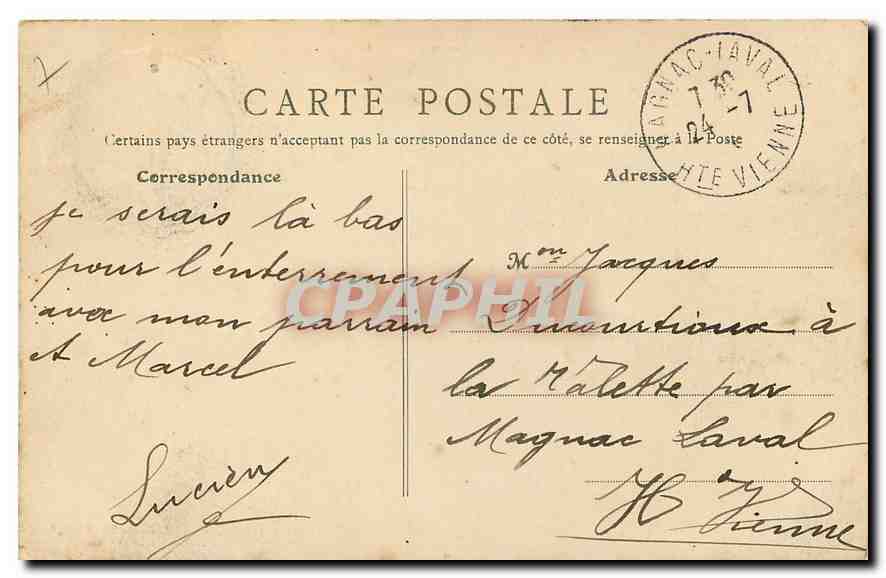 MAGNAC-LAVAL
7 30
24 -7
HTE VIENNE
CARTE POSTALE
Certains pays étrangers n'acceptant pas la correspondance de ce côté, se renseigner à la Poste
Correspondance
je serais là bas
pour l'enterrement
avec mon parrain
et Marcel
Lucien
Adresse
Mon Jacques
Ducourtioux à
la Malette par
Magnac Laval
Hte Vienne
CPAPHIL